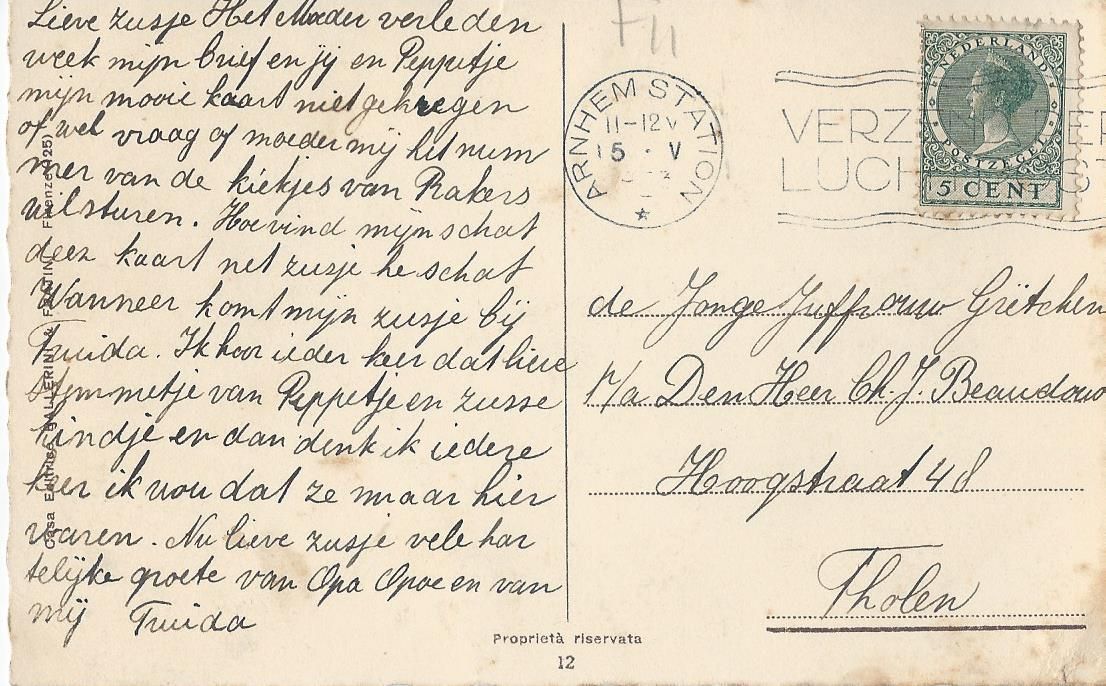 Lieve zusje Het Moeder verleden
week mijn brief en jij en Peppetje
mijn mooie kaart niet gekregen
of wel vraag of moeder mij het num
mer van de kiekjes van Rakers
wil sturen. Hoe vind mijn schat
deez kaart net zusje he schat
Wanneer komt mijn zusje bij
Truida. Ik hoor ieder keer dat lieve
stemmetje van Peppetje en zusse
kindje en dan denk ik iedere
keer ik wou dat ze maar hier
waren. Nu lieve zusje vele har
telijke groete van Opa Opoe en van
mij Truida
Casa Editrice BALLERINI & FRATINI - Firenze (125)
Proprietà riservata
12
ARNHEM STATION
11-12V
15 V
VERZ
LUCH
NEDERLAND
POSTZEGEL
5 CENT
de Jonge Juffrouw Grëtchen
p/a Den Heer Ch. J. Beaudouw
Hoogstraat 48
Tholen